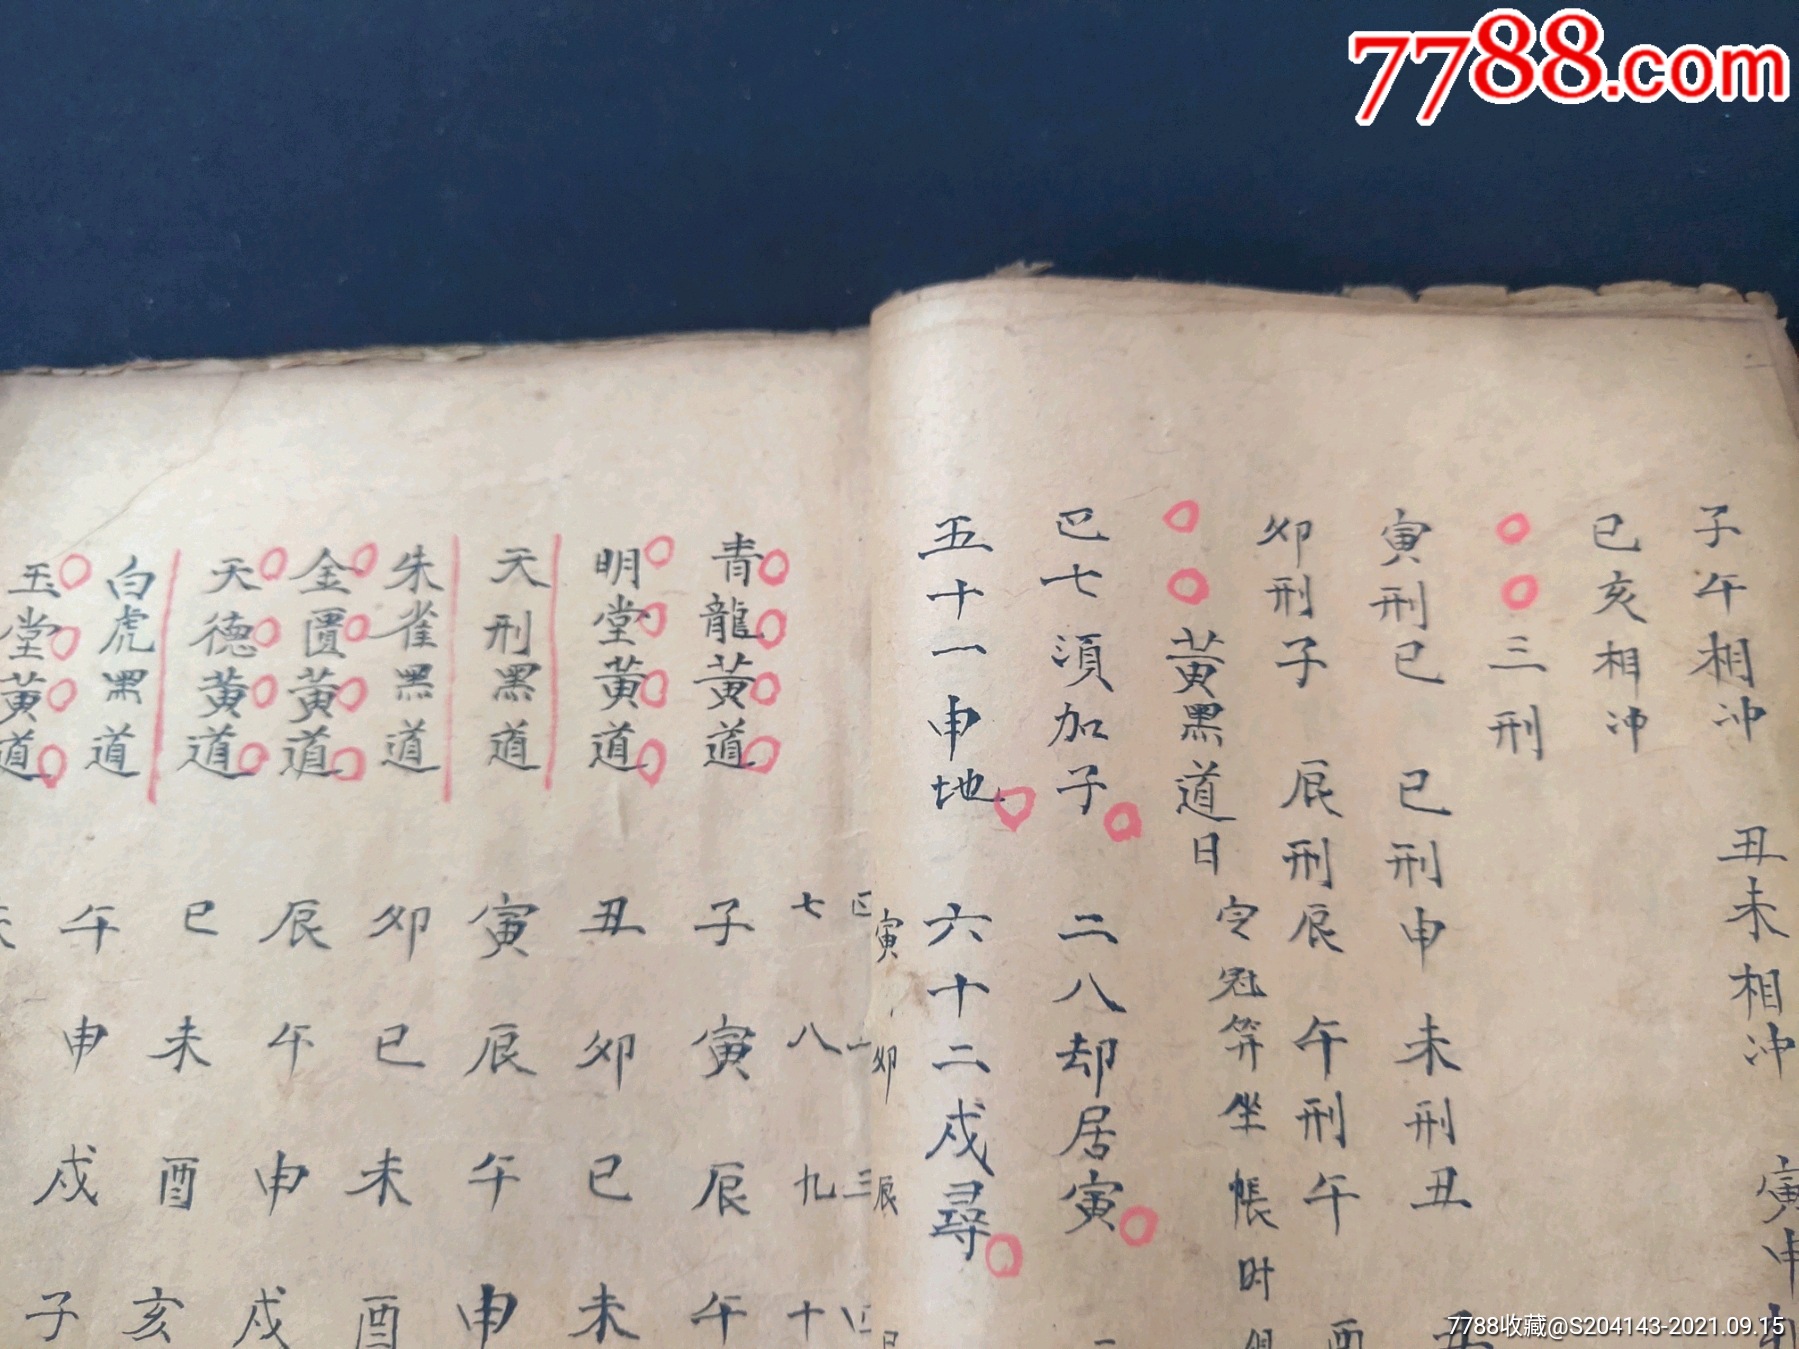 7788.com
子午相沖　丑未相沖　寅申
巳亥相沖
三刑
寅刑巳　巳刑申　未刑丑
卯刑子　辰刑辰　午刑午　酉
黃黑道日　定冠笄坐帳时
巳七須加子　二八却居寅
五十一申地　六十二戌尋
寅　卯　辰
七　八　九　十
青龍黃道　子　寅　辰　午
明堂黃道　丑　卯　巳　未
天刑黑道　寅　辰　午　申
朱雀黑道　卯　巳　未　酉
金匱黃道　辰　午　申　戌
天德黃道　巳　未　酉　亥
白虎黑道　午　申　戌　子
玉堂黃道
7788收藏@S204143-2021.09.15